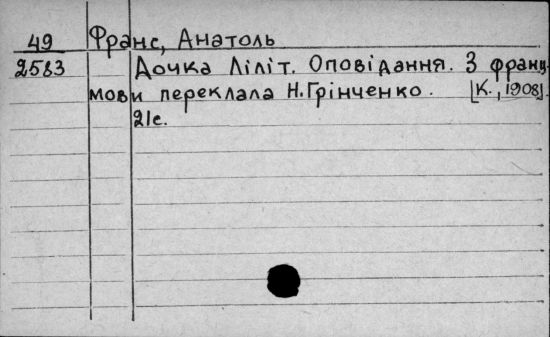 49 Франс, Анатоль
2583 Дочка Ліліт. Оповідання. З франц.
мови переклала Н.Грінченко. [К., 1908].
21с.